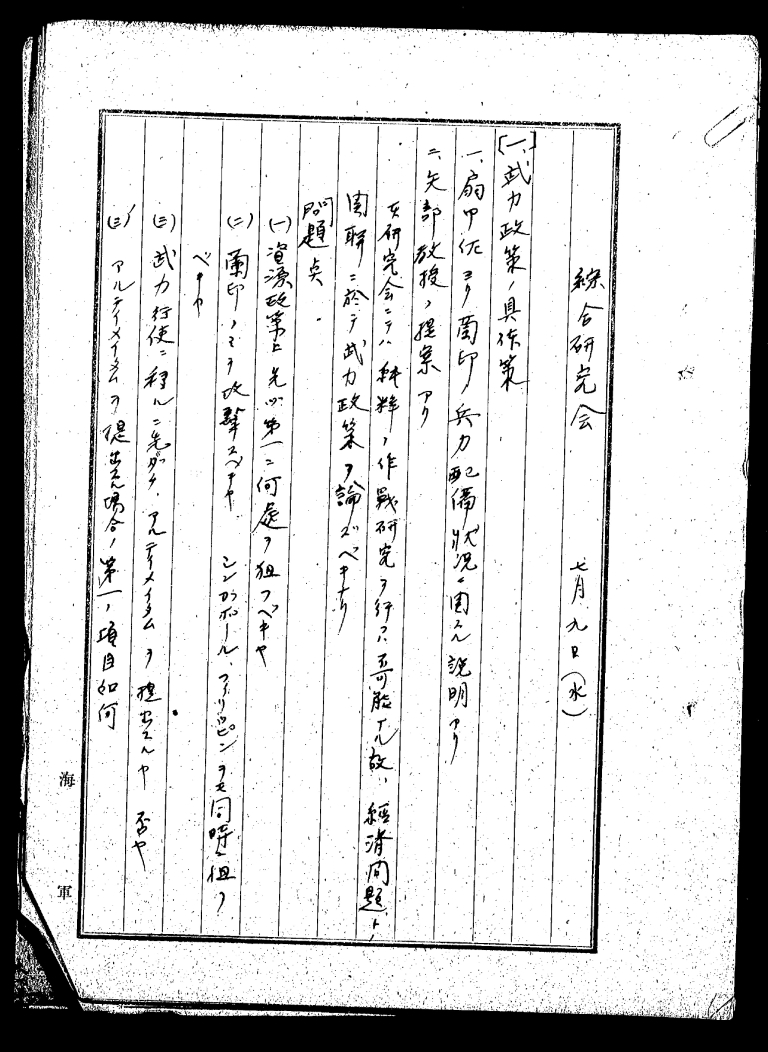 綜合研究会　七月九日(水)
[一、]武力政策ノ具体策
一、扇中佐ヨリ蘭印ノ兵力配備状況ニ関スル説明アリ
二、矢部教授ノ提案アリ
研究会ニテハ純粋ノ作戦研究ヲ行フハ不可能ナル故、経済問題トノ
関聯ニ於テ武力政策ヲ論ズベキナリ
問題点．
(一)資源政策上先ヅ第一ニ何処ヲ狙フベキヤ
(二)蘭印ノミヲ攻撃スベキヤ　シンガポール、フィリッピンヲモ同時ニ狙フ
ベキカ
(三)武力行使ニ移ルニ先ダチ、アルティメイタムヲ提出スルヤ　否ヤ
(三)'アルティメイタムヲ提出スル場合ノ第一ノ項目如何
海軍